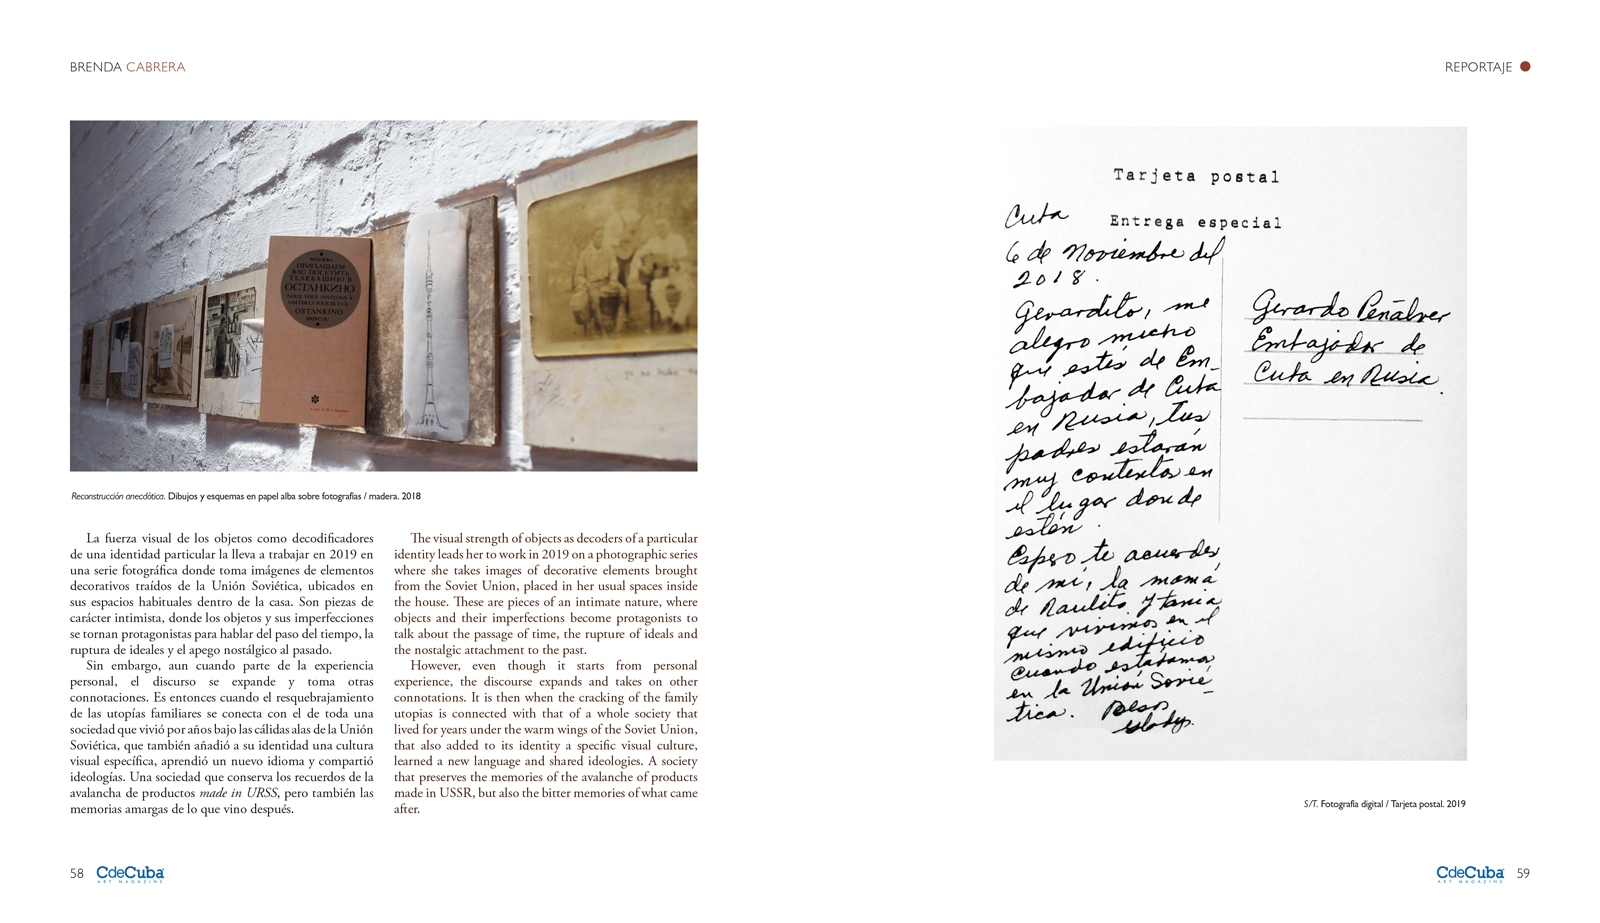 BRENDA CABRERA
REPORTAJE
МОСКВА
ПРИГЛАШАЕМ
ВАС ПОСЕТИТЬ
ТЕЛЕБАШНЮ В
ОСТАНКИНО
NOUS VOUS INVITONS A
VISITER LA TOUR DE T.V.
OSTANKINO
MOSCOU
Reconstrucción anecdótica. Dibujos y esquemas en papel alba sobre fotografías / madera. 2018
La fuerza visual de los objetos como decodificadores
de una identidad particular la lleva a trabajar en 2019 en
una serie fotográfica donde toma imágenes de elementos
decorativos traídos de la Unión Soviética, ubicados en
sus espacios habituales dentro de la casa. Son piezas de
carácter intimista, donde los objetos y sus imperfecciones
se tornan protagonistas para hablar del paso del tiempo, la
ruptura de ideales y el apego nostálgico al pasado.
Sin embargo, aun cuando parte de la experiencia
personal, el discurso se expande y toma otras
connotaciones. Es entonces cuando el resquebrajamiento
de las utopías familiares se conecta con el de toda una
sociedad que vivió por años bajo las cálidas alas de la Unión
Soviética, que también añadió a su identidad una cultura
visual específica, aprendió un nuevo idioma y compartió
ideologías. Una sociedad que conserva los recuerdos de la
avalancha de productos made in URSS, pero también las
memorias amargas de lo que vino después.
The visual strength of objects as decoders of a particular
identity leads her to work in 2019 on a photographic series
where she takes images of decorative elements brought
from the Soviet Union, placed in her usual spaces inside
the house. These are pieces of an intimate nature, where
objects and their imperfections become protagonists to
talk about the passage of time, the rupture of ideals and
the nostalgic attachment to the past.
However, even though it starts from personal
experience, the discourse expands and takes on other
connotations. It is then when the cracking of the family
utopias is connected with that of a whole society that
lived for years under the warm wings of the Soviet Union,
that also added to its identity a specific visual culture,
learned a new language and shared ideologies. A society
that preserves the memories of the avalanche of products
made in USSR, but also the bitter memories of what came
after.
58 CdeCuba
ART MAGAZINE
Tarjeta postal
Entrega especial
Cuba
6 de Noviembre del
2018.
Gerardito, me
alegro mucho
que estés de Em_
bajador de Cuba
en Rusia, tus
padres estarán
muy contentos en
el lugar donde
estén.
Espero te acuerdes
de mí, la mamá
de Raulito y Tania
que vivimos en el
mismo edificio
cuando estábamos
en la Unión Sovié_
tica. Besos
Gladys.
Gerardo Peñalver
Embajador de
Cuba en Rusia.
S/T. Fotografía digital / Tarjeta postal. 2019
CdeCuba 59
ART MAGAZINE